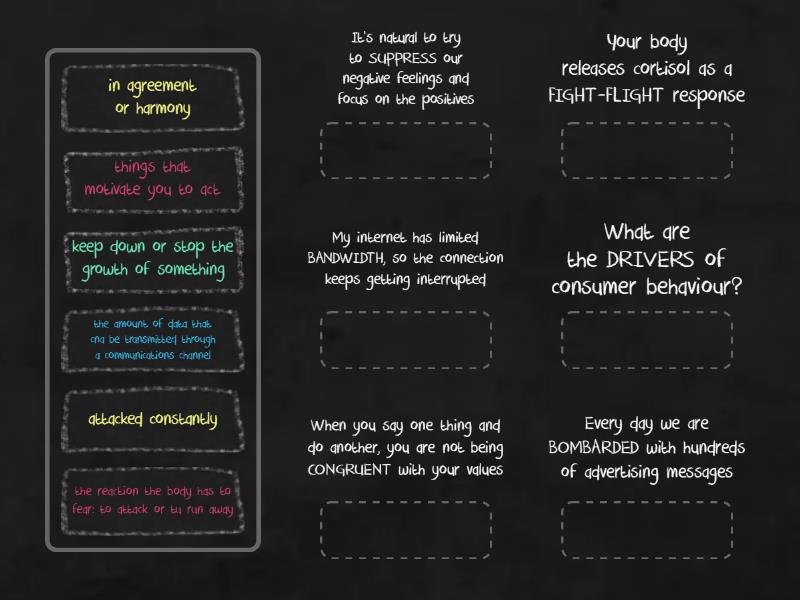 in agreement
or harmony
things that
motivate you to act
keep down or stop the
growth of something
the amount of data that
cna be transmitted through
a communications channel
attacked constantly
the reaction the body has to
fear: to attack or tu run away
It's natural to try
to SUPPRESS our
negative feelings and
focus on the positives
Your body
releases cortisol as a
FIGHT-FLIGHT response
My internet has limited
BANDWIDTH, so the connection
keeps getting interrupted
What are
the DRIVERS of
consumer behaviour?
When you say one thing and
do another, you are not being
CONGRUENT with your values
Every day we are
BOMBARDED with hundreds
of advertising messages